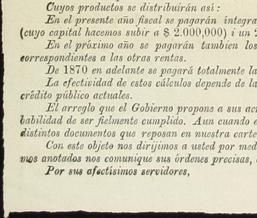 Cuyos productos se distribuirán así:
En el presente año fiscal se pagarán íntegra
(cuyo capital hacemos subir a $ 2.000,000) i un
En el próximo año se pagarán tambien los
correspondientes a las otras rentas.
De 1870 en adelante se pagará totalmente la
La efectividad de estos cálculos depende de la
crédito público actuales.
El arreglo que el Gobierno propone a sus ac
babilidad de ser fielmente cumplido. Aun cuando e
distintos documentos que reposan en nuestra carte
Con este objeto nos dirijimos a usted por med
mos anotados nos comunique sus órdenes precisas,
Por sus afectísimos servidores,